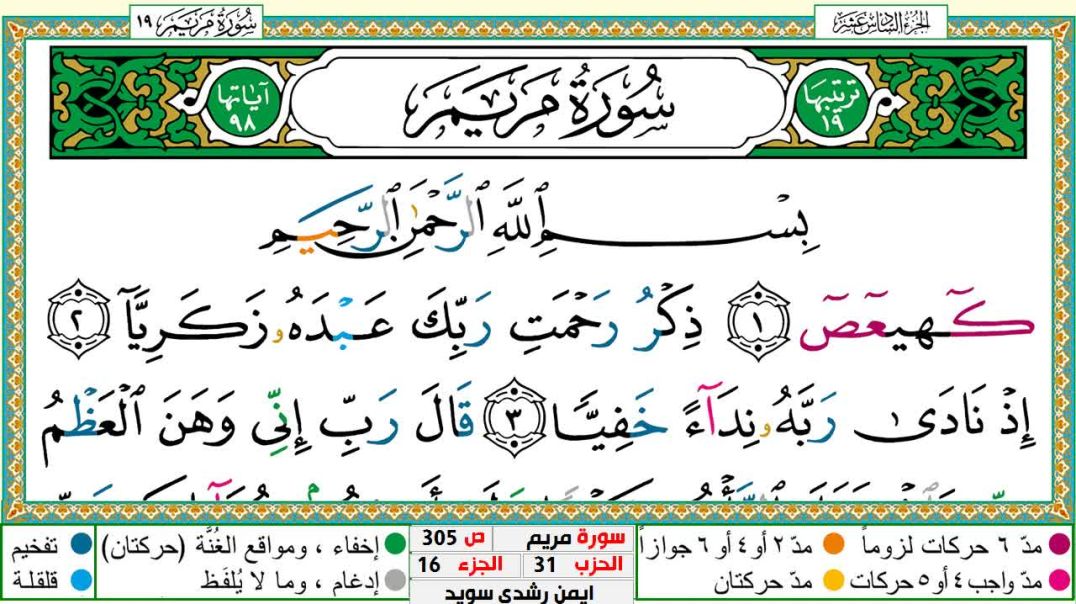 الجزء السادس عشر
سُورَةُ مَرْيَمَ ١٩
ترتيبها ١٩
سُورَةُ مَرْيَمَ
آياتها ٩٨
بِسْمِ ٱللَّهِ ٱلرَّحْمَٰنِ ٱلرَّحِيمِ
كٓهيعٓصٓ ١ ذِكْرُ رَحْمَتِ رَبِّكَ عَبْدَهُۥ زَكَرِيَّآ ٢
إِذْ نَادَىٰ رَبَّهُۥ نِدَآءً خَفِيًّا ٣ قَالَ رَبِّ إِنِّى وَهَنَ ٱلْعَظْمُ
مدّ ٦ حركات لزوماً
مدّ ٢ أو ٤ أو ٦ جوازاً
مدّ واجب ٤ أو ٥ حركات
مدّ حركتان
سورة مريم
ص 305
الحزب 31
الجزء 16
ايمن رشدي سويد
إخفاء ، ومواقع الغُنَّة (حركتان)
تفخيم
إدغام ، وما لا يُلفَظ
قلقلة